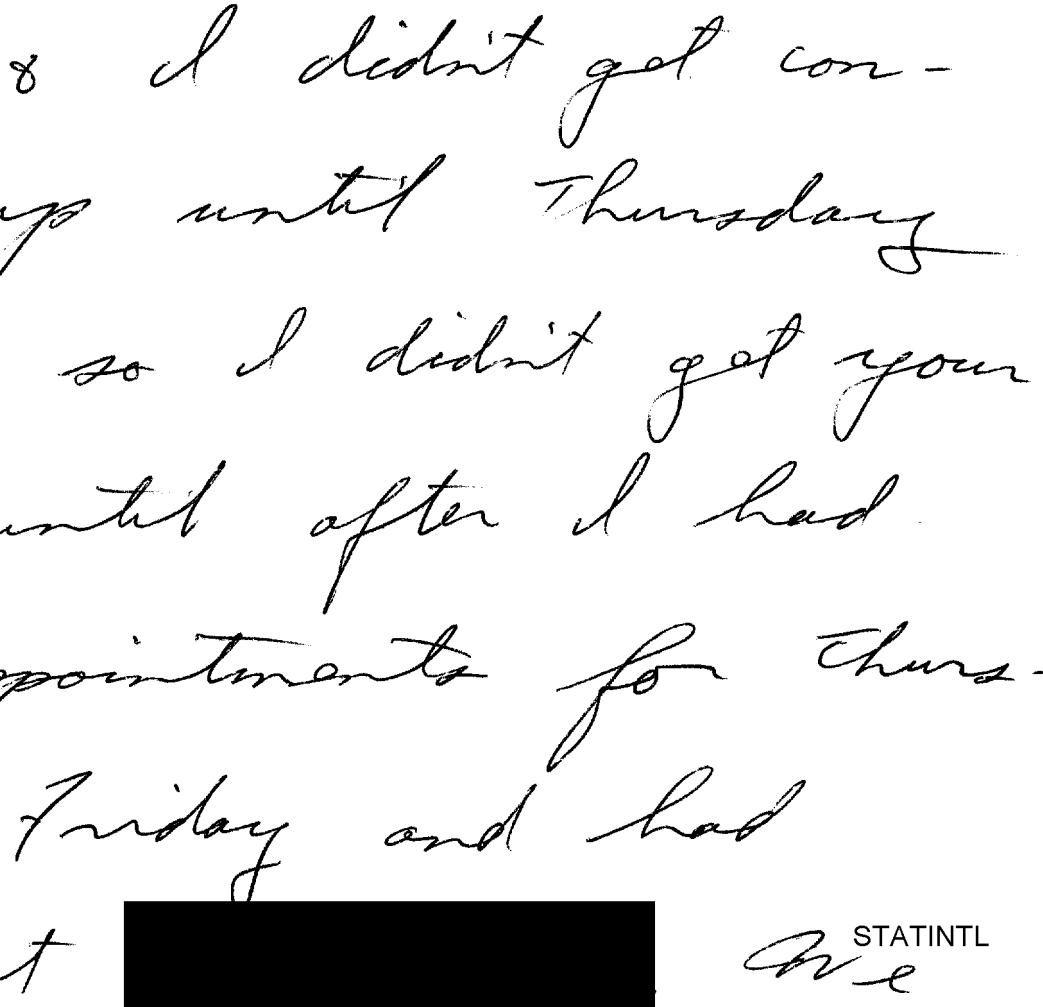 & I didn't get con-
up until Thursday
so I didn't get your
until after I had
ppointments for Thurs-
Friday and had
t
STATINTL
We